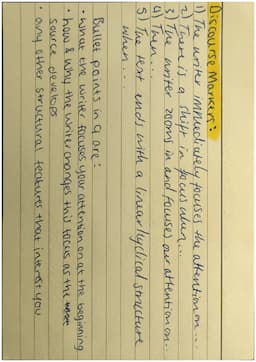 Discourse Markers:
1) The writer immediately focuses the attention on...
2) There is a shift in focus when...
3) The writer zooms in and focuses our attention on...
4) Then...
5) The text ends with a linear/cyclical structure
when....
Bullet points in Q are:
• What the writer focuses your attention on at the beginning
• how & why the writer changes this focus as the
source develops
• any other structural features that interest you